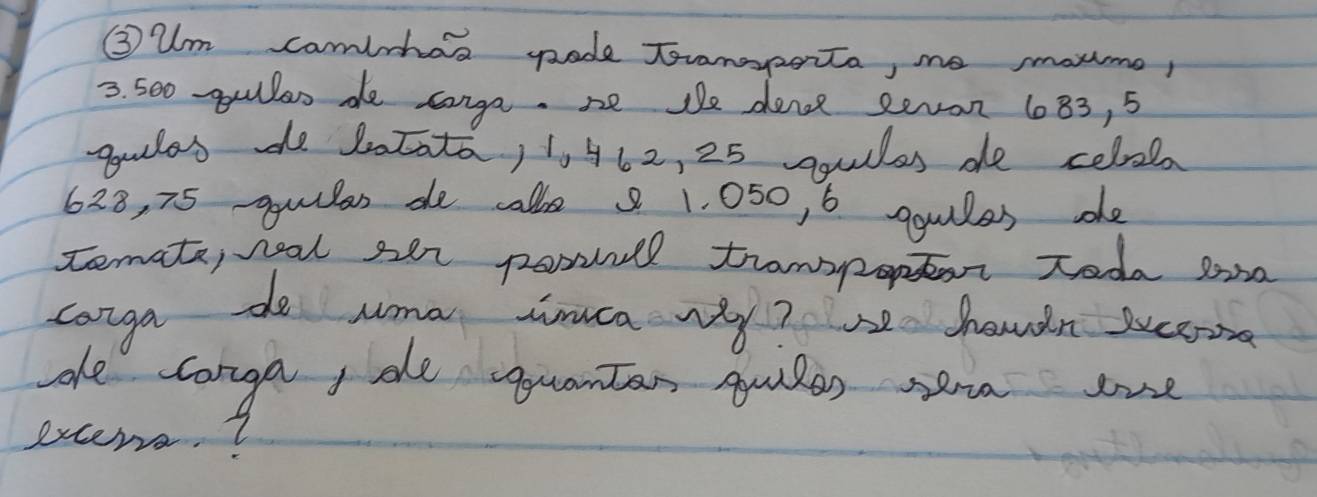 ③ Um caminhão pode transporta, no maximo,
3.500 quilos de carga. se ele deve levar 683,5
quilos de batata, 1.462,25 quilos de cebola
628,75 quilos de alho e 1.050,6 quilos de
tomate, vai ser possivel transportar toda essa
carga de uma única vez? se houver excesso
de carga, de quantos quilos sera esse
excesso.?